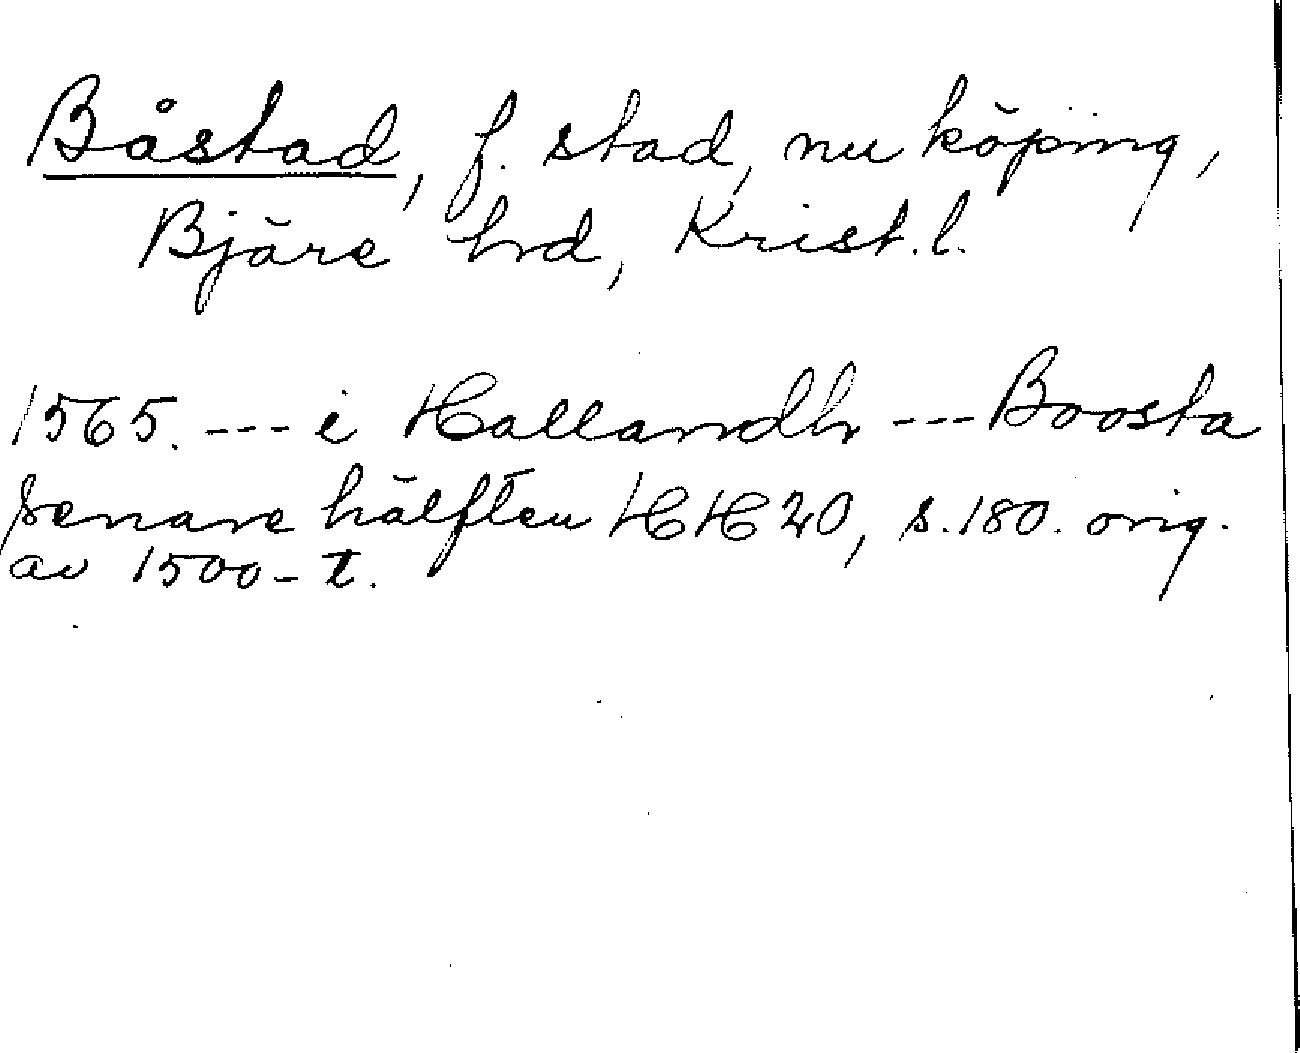 Båstad, f. stad, nu köping,
Bjäre hrd, Krist. l.
1565. --- i Hallandh --- Boosta
senare hälften HH 20, s. 180. orig.
av 1500-t.